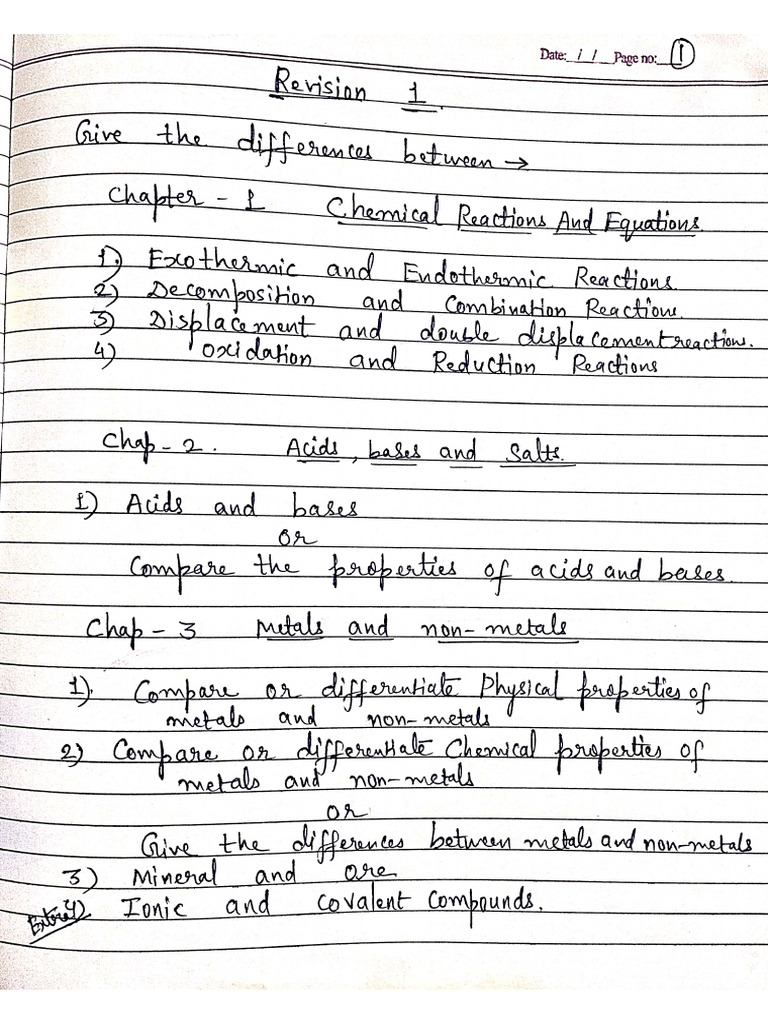 Date: / / Page no: 1
Revision 1.
Give the differences between →
Chapter - 1 Chemical Reactions And Equations.
1). Exothermic and Endothermic Reactions.
2) Decomposition and Combination Reactions.
3) Displacement and double displacement reactions.
4) Oxidation and Reduction Reactions
Chap - 2. Acids, bases and Salts.
1) Acids and bases
or
Compare the properties of acids and bases.
Chap - 3 Metals and non-metals
1). Compare or differentiate Physical properties of
metals and non-metals
2) Compare or differentiate Chemical properties of
metals and non-metals
or
Give the differences between metals and non-metals
3) Mineral and ore
Extra 4) Ionic and covalent compounds.